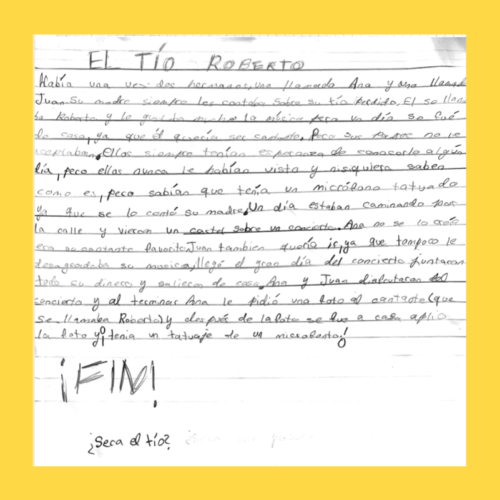 EL TÍO ROBERTO
Había una ves dos hermanos, uno llamado Ana y uno llamado
Juan. Su madre siempre les contaba sobre su tío perdido, El se llama
ba Roberto y le gustaba mucho la música pero un día se fué
de casa, ya que él quería ser cantante. Pero sus padres no le
aceptaban. Ellos siempre tenían esperanza de conocerlo algún
día, pero ellos nunca le habían visto y nisiquiera saben
como es, pero sabían que tenía un micrófono tatuado
ya que se lo contó su madre. Un día estaban caminando por
la calle y vieron un cartel sobre un concierto. Ana no se lo creía
era su cantante favorito. Juan tambien quería ir, ya que tampoco le
desagradaba su musica, llegó el gran día del concierto juntaron
todo su dinero y salieron de casa, Ana y Juan disfrutaron del
concierto y al terminar Ana le pidió una foto al cantante (que
se llamaba Roberto) y después de la foto se fue a casa amplio
la foto y ¡tenia un tatuaje de un
¡FIN!
¿Sera el tío?